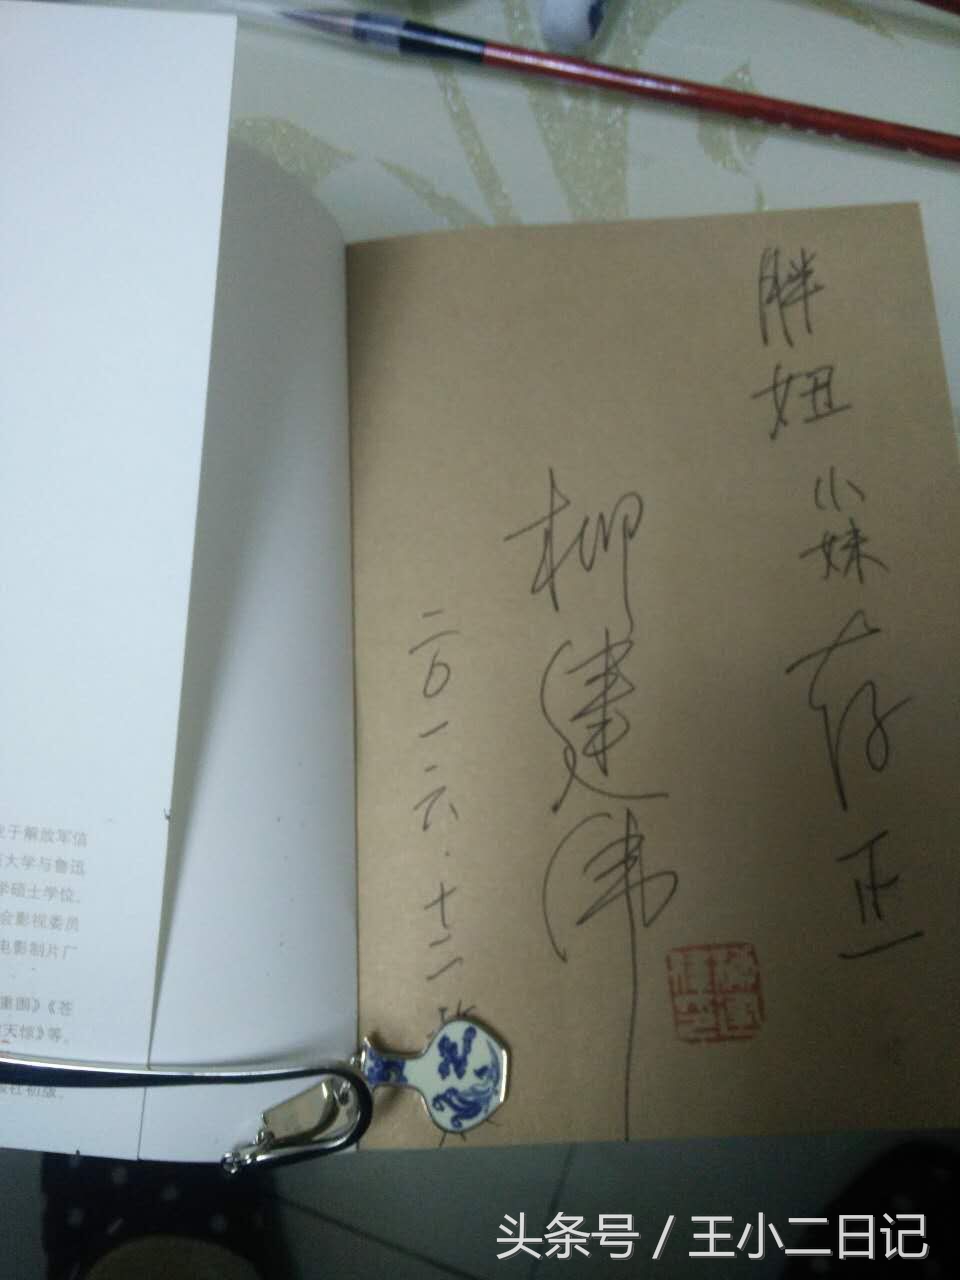 胖妞
小妹
存正
柳建伟
二〇一六.十二
于解放军信
大学与鲁迅
学硕士学位。
会影视委员
电影制片厂
重围》《苍
天惊》等。
头条号 / 王小二日记